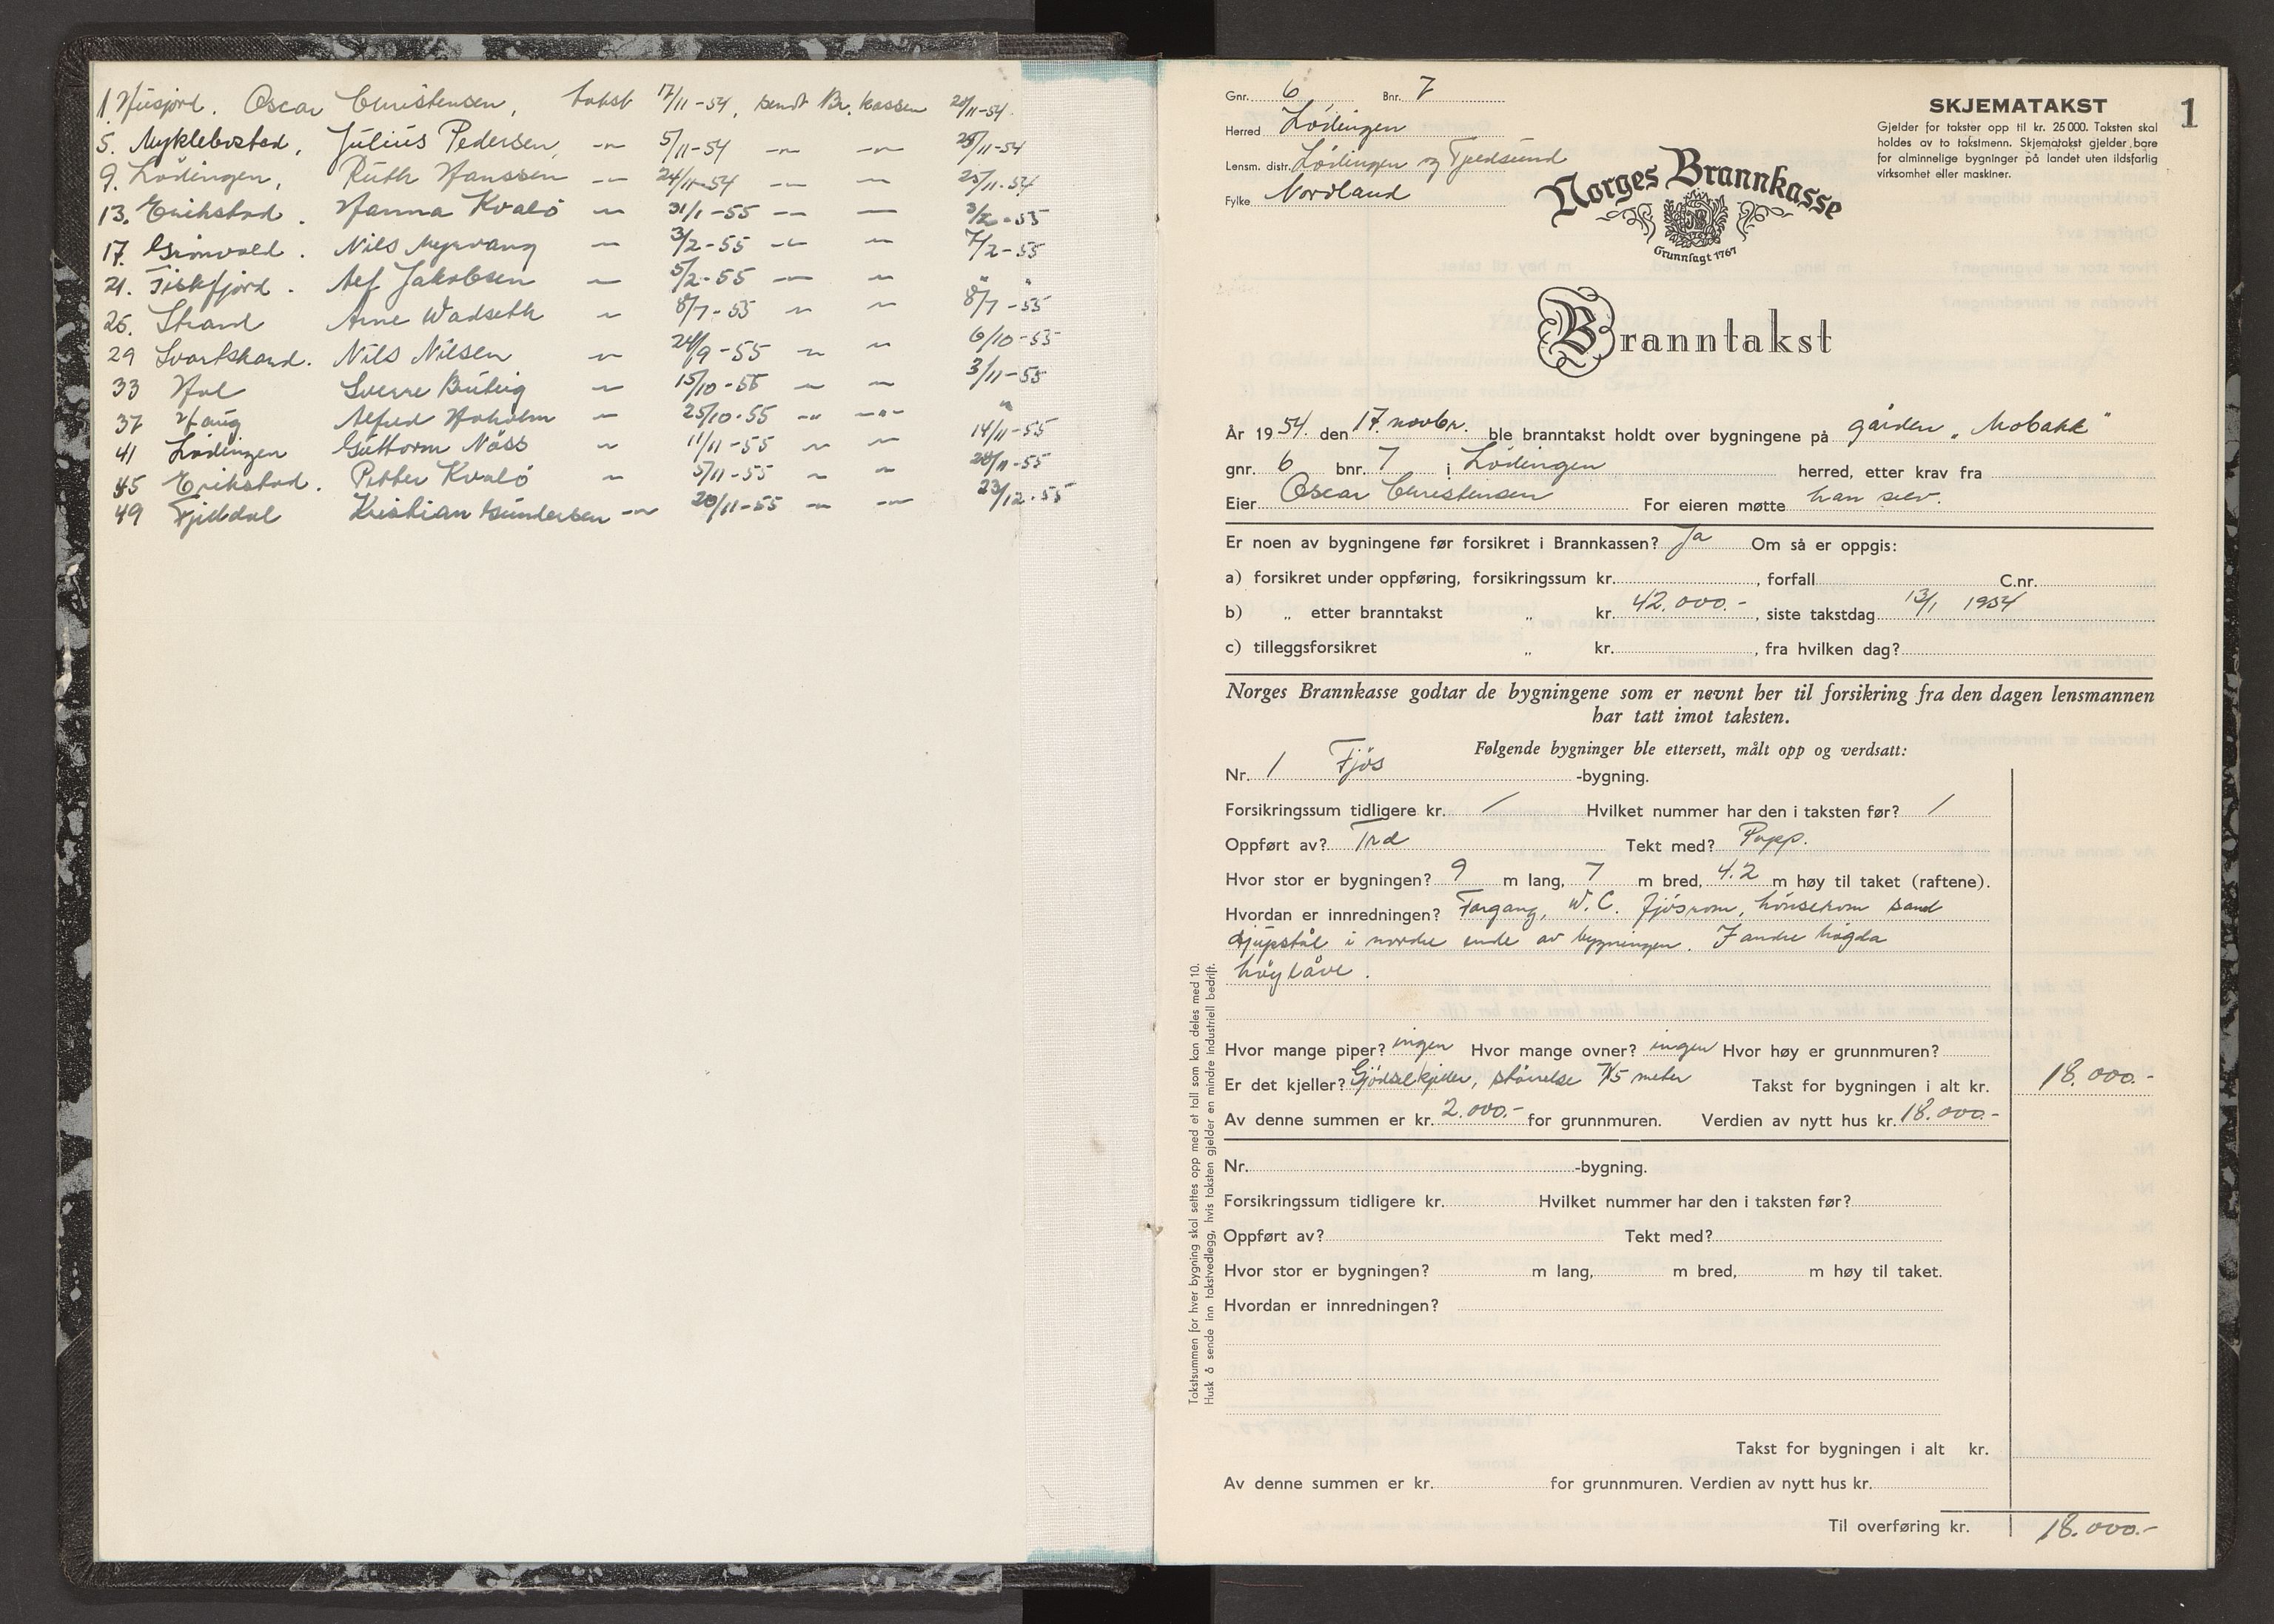 1. Husjord. Oscar Christensen, takst 17/11-54, sendt Br. kassen 20/11-54.
5. Myklebostad, Julius Pedersen, -"- 5/11-54 -"- -"- 25/11-54
9. Lödingen, Ruth Hanssen -"- 24/11-54 -"- -"- 25/11-54
13. Erikstad. Hanna Kvalö -"- 31/1-55 -"- -"- 3/2-55
17. Grönvold. Nils Myrvang -"- 3/2-55 -"- -"- 7/2-55
21. Fiskfjord. Alf Jakobsen -"- 5/2-55 -"- -"- " "
25. Strand Arne Wadseth -"- 8/7-55 -"- -"- 8/7-55
29 Svartskard. Nils Nilsen -"- 24/9-55 -"- -"- 6/10-55
33 Hol Sverre -"- 15/10-55 -"- -"- 3/11-55
37 Haug Alfred Hoholm -"- 25/10-55 -"- -"- "
41 Lödingen Guttorm Näss -"- 11/11-55 -"- -"- 14/11-55
45 Erikstad. Petter Kvalö -"- 5/11-55 -"- -"- 20/11-55
49 Fjelldal Kristian Gundersen -"- 20/11-55 -"- -"- 23/12-55
Gnr. 6 Bnr. 7
Herred Lödingen
Lensm. distr. Lödingen og Tjeldsund
Fylke Nordland
SKJEMATAKST 1
Gjelder for takster opp til kr. 25 000. Taksten skal
holdes av to takstmenn. Skjematakst gjelder bare
for alminnelige bygninger på landet uten ildsfarlig
virksomhet eller maskiner.
Norges Brannkasse
Grunnlagt 1767
Branntakst
År 1954. den 17. novbr. ble branntakst holdt over bygningene på gården „Mobakk"
gnr. 6 bnr. 7 i Lödingen herred, etter krav fra
Eier Oscar Christensen For eieren møtte han selv.
Er noen av bygningene før forsikret i Brannkassen? Ja Om så er oppgis:
a) forsikret under oppføring, forsikringssum kr. , forfall C.nr.
b) „ etter branntakst „ kr. 42.000.- , siste takstdag 13/1 1954
c) tilleggsforsikret „ kr. , fra hvilken dag?
Norges Brannkasse godtar de bygningene som er nevnt her til forsikring fra den dagen lensmannen
har tatt imot taksten.
Følgende bygninger ble ettersett, målt opp og verdsatt:
Nr. 1 Fjös -bygning.
Forsikringssum tidligere kr. / Hvilket nummer har den i taksten før? /
Oppført av? Tre Tekt med? Papp.
Hvor stor er bygningen? 9 m lang, 7 m bred, 4.2 m høy til taket (raftene).
Hvordan er innredningen? Forgang, W.C. fjösrom, hönserom samt
djupstål i nordre ende av bygningen. I andre høgda
höylåve.
Hvor mange piper? ingen Hvor mange ovner? ingen Hvor høy er grunnmuren?
Er det kjeller? Gjödselkjeller, störrelse 7x5 meter Takst for bygningen i alt kr. 18.000.-
Av denne summen er kr. 2.000.- for grunnmuren. Verdien av nytt hus kr. 18.000.-
Nr. -bygning.
Forsikringssum tidligere kr. Hvilket nummer har den i taksten før?
Oppført av? Tekt med?
Hvor stor er bygningen? m lang, m bred, m høy til taket.
Hvordan er innredningen?
Takst for bygningen i alt kr.
Av denne summen er kr. for grunnmuren. Verdien av nytt hus kr.
Til overføring kr. 18.000.-
Takstsummen for hver bygning skal settes opp med et tall som kan deles med 10.
Husk å sende inn takstvedlegg, hvis taksten gjelder en mindre industriell bedrift.